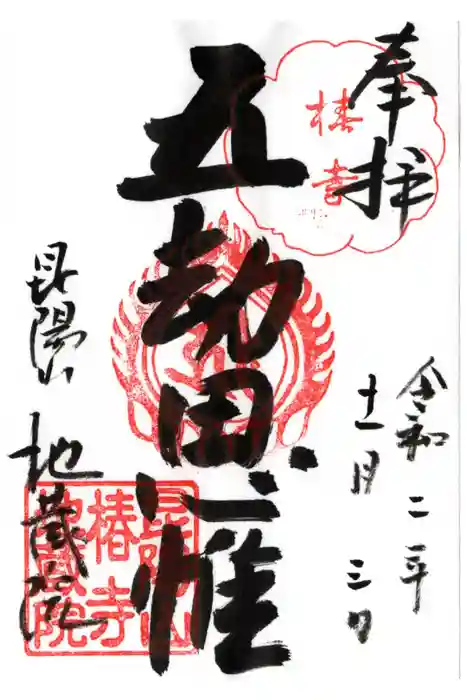 奉拝
椿寺
令和二年
十一月三日
五劫思惟
昆陽山 地蔵院
昆陽山
椿寺
地蔵院